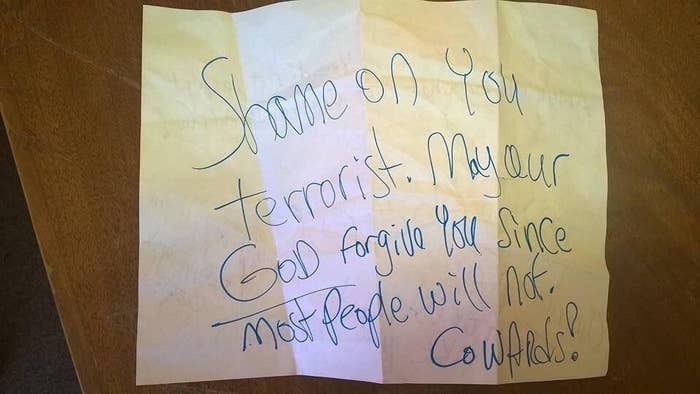 Shame on You
terrorist. May our
GOD forgive You Since
most People will not.
Cowards!